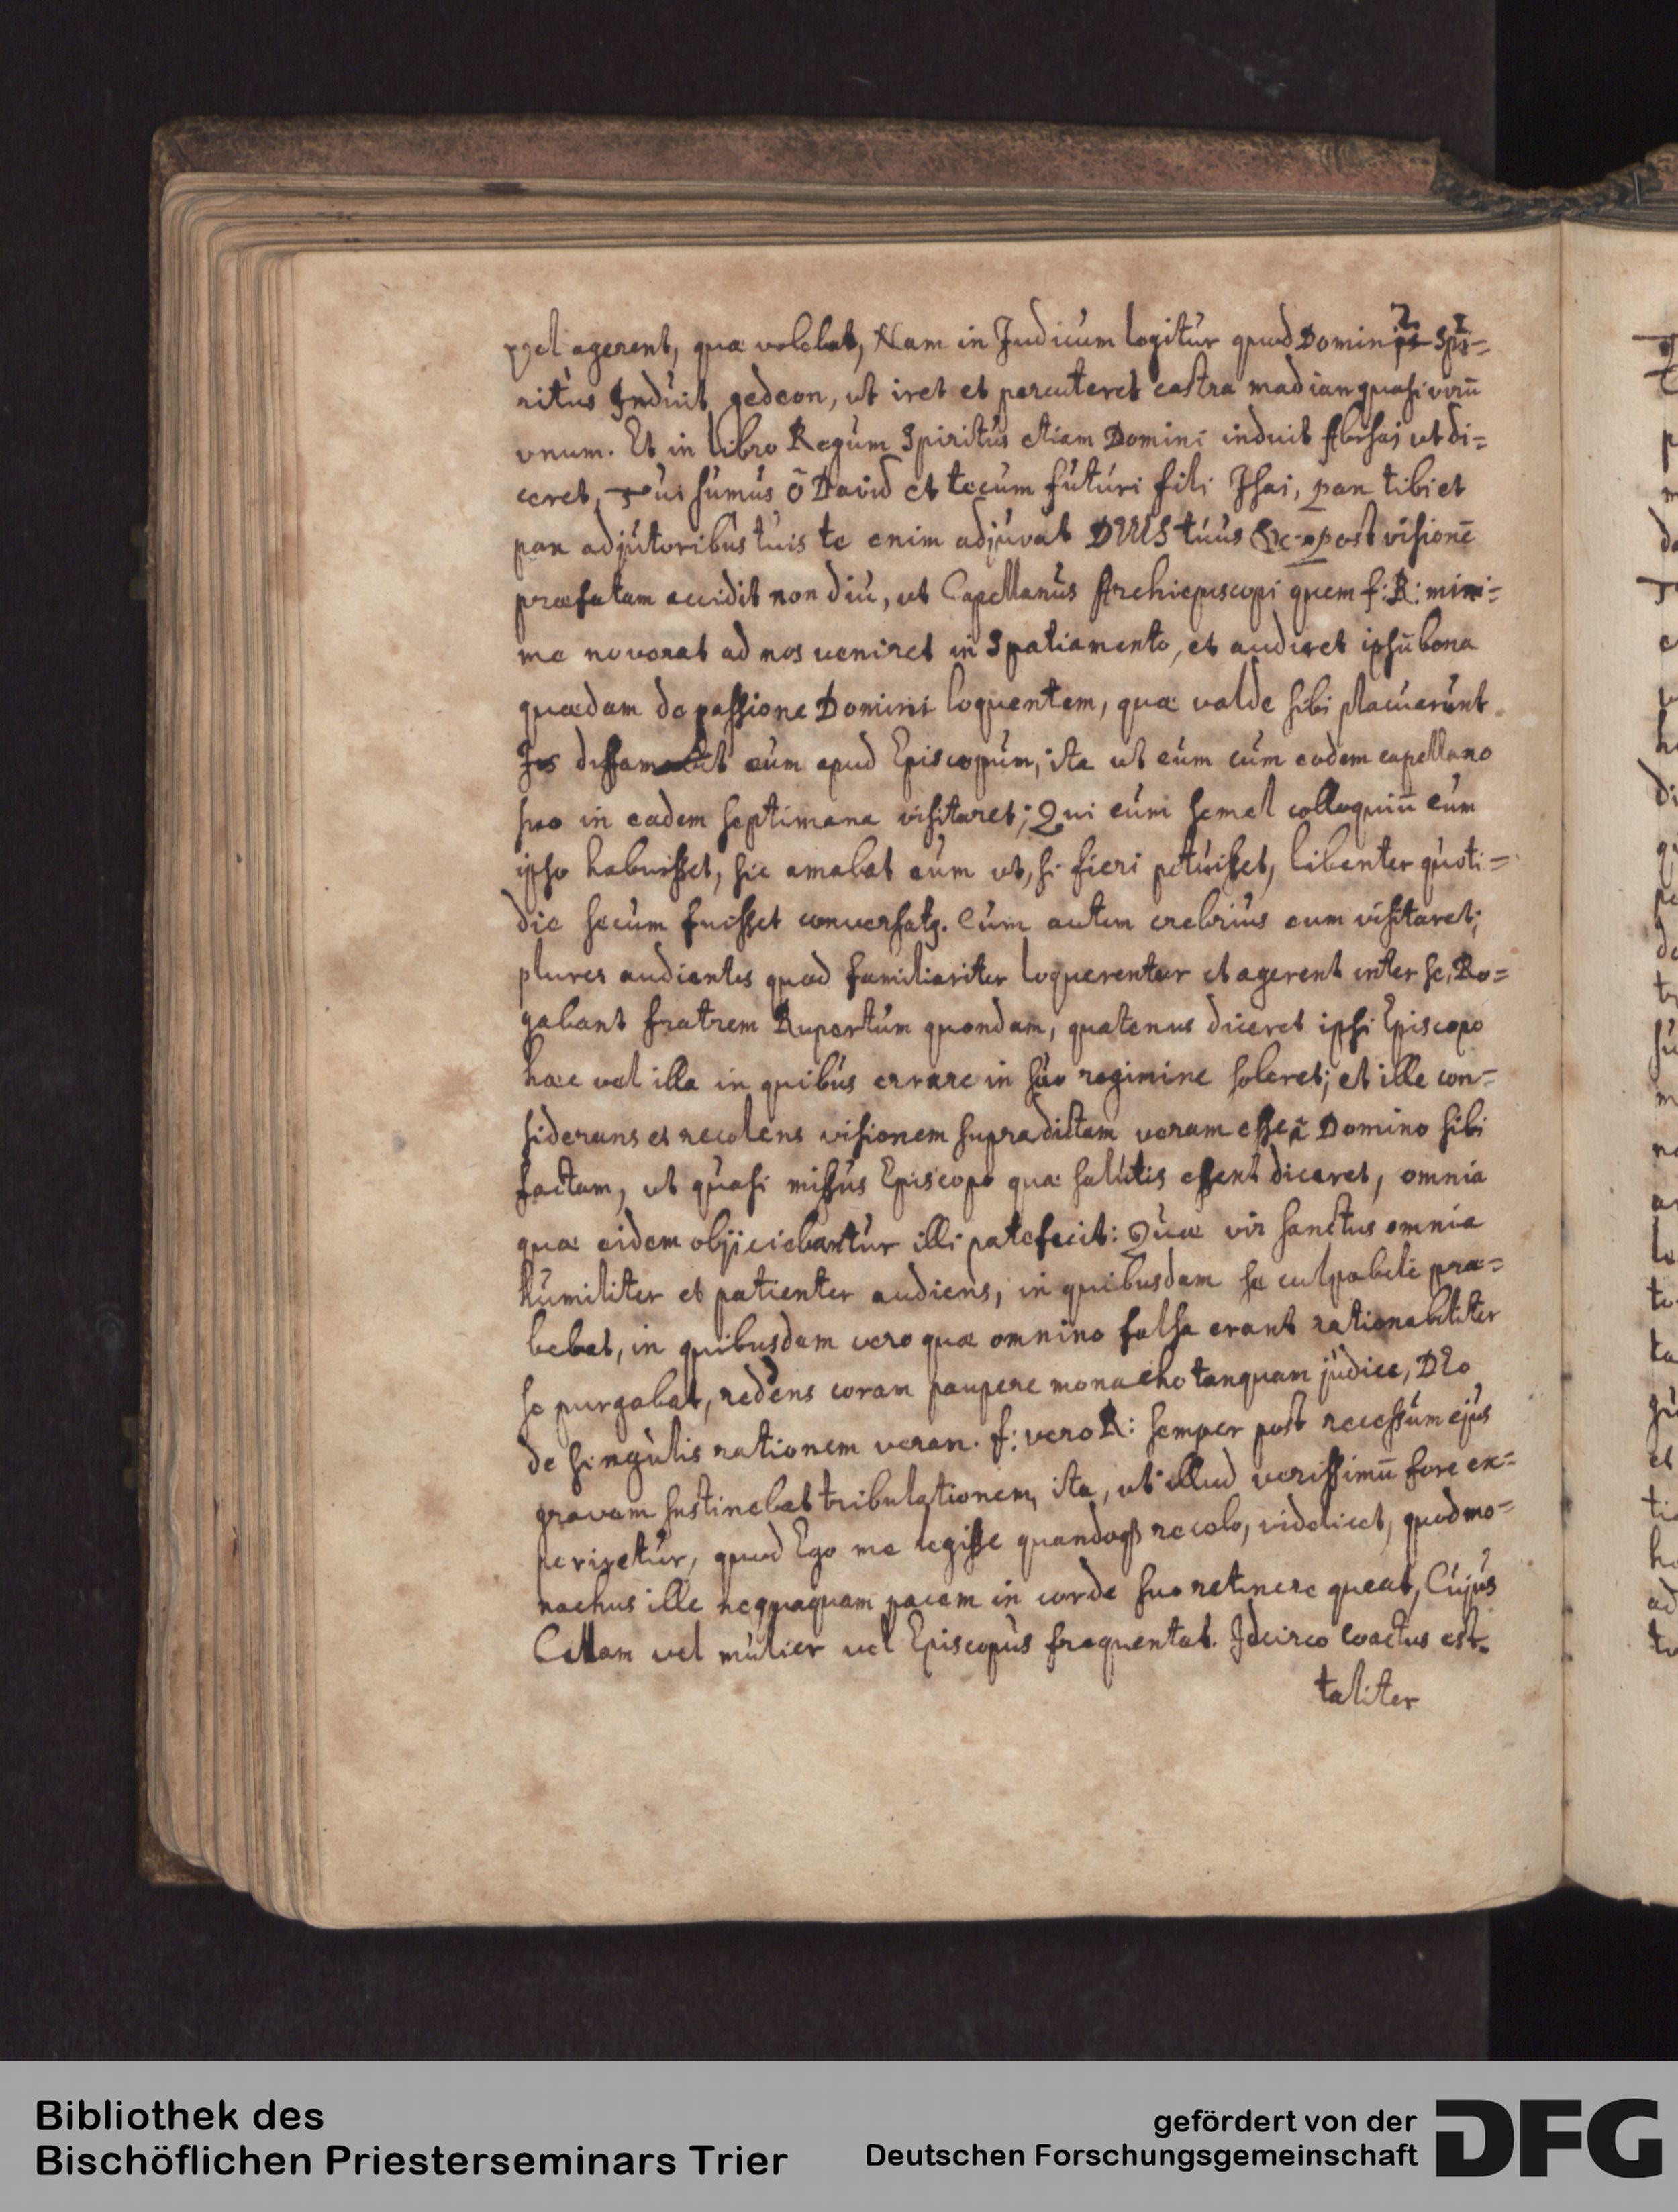 vel agerent, quæ volebat, Nam in Judicum legitur quod Domini Spi=
ritus Induit gedeon, ut iret et percuteret castra madian quasi virū
vnum. Et in libro Regum Spiritus etiam Domini induit Abisai ut di=
ceret, Tui sumus ô David et tecum futuri fili Isai, pax tibi et
pax adjutoribus tuis te enim adjuvat DEUS tuus &c. post visionē
præfatam accidit non diu, ut Capellanus Archiepiscopi quem f: R: mini=
me noverat ad nos veniret in Spatiamento, et audiret ipsū bona
quædam de passione Domini loquentem, quæ valde sibi placuerunt
Is diffamavit eum apud Episcopum, ita ut eum cum eodem capellano
suo in eadem septimana visitaret; Qui cum semel colloquiū cum
ipso habuisset, sic amabat eum ut, si fieri potuisset, libenter quoti=
die secum fuisset conversatꝫ. Cum autem crebrius eum visitaret;
plures audientes quod familiariter loquerentur et agerent inter se, Ro=
gabant fratrem Rupertum quondam, quatenus diceret ipsi Episcopo
hæc vel illa in quibus errare in suo regimine soleret; et ille con=
siderans et recolens visionem supradictam veram esse â Domino sibi
factam, ut quasi missus Episcopo quæ salutis essent diceret, omnia
quæ eidem objiciebantur illi patefecit: Quæ vir sanctus omnia
humiliter et patienter audiens, in quibusdam se culpabile præ=
bebat, in quibusdam vero quæ omnino falsa erant rationabiliter
se purgabat, redens coram paupere monacho tanquam judice, DEo
de singulis rationem veram. f: vero R: semper post recessum ejus
gravem sustinebat tribulationem, ita, ut illud verissimū fore ex=
periretur, quod Ego me legisse quandoqꝫ recolo, videlicet, quod mo=
nachus ille nequaquam pacem in corde suo retinere queat, Cujus
Cellam vel mulier vel Episcopus frequentat. Idcirco coactus est
taliter
Bibliothek des
Bischöflichen Priesterseminars Trier
gefördert von der
Deutschen Forschungsgemeinschaft
DFG